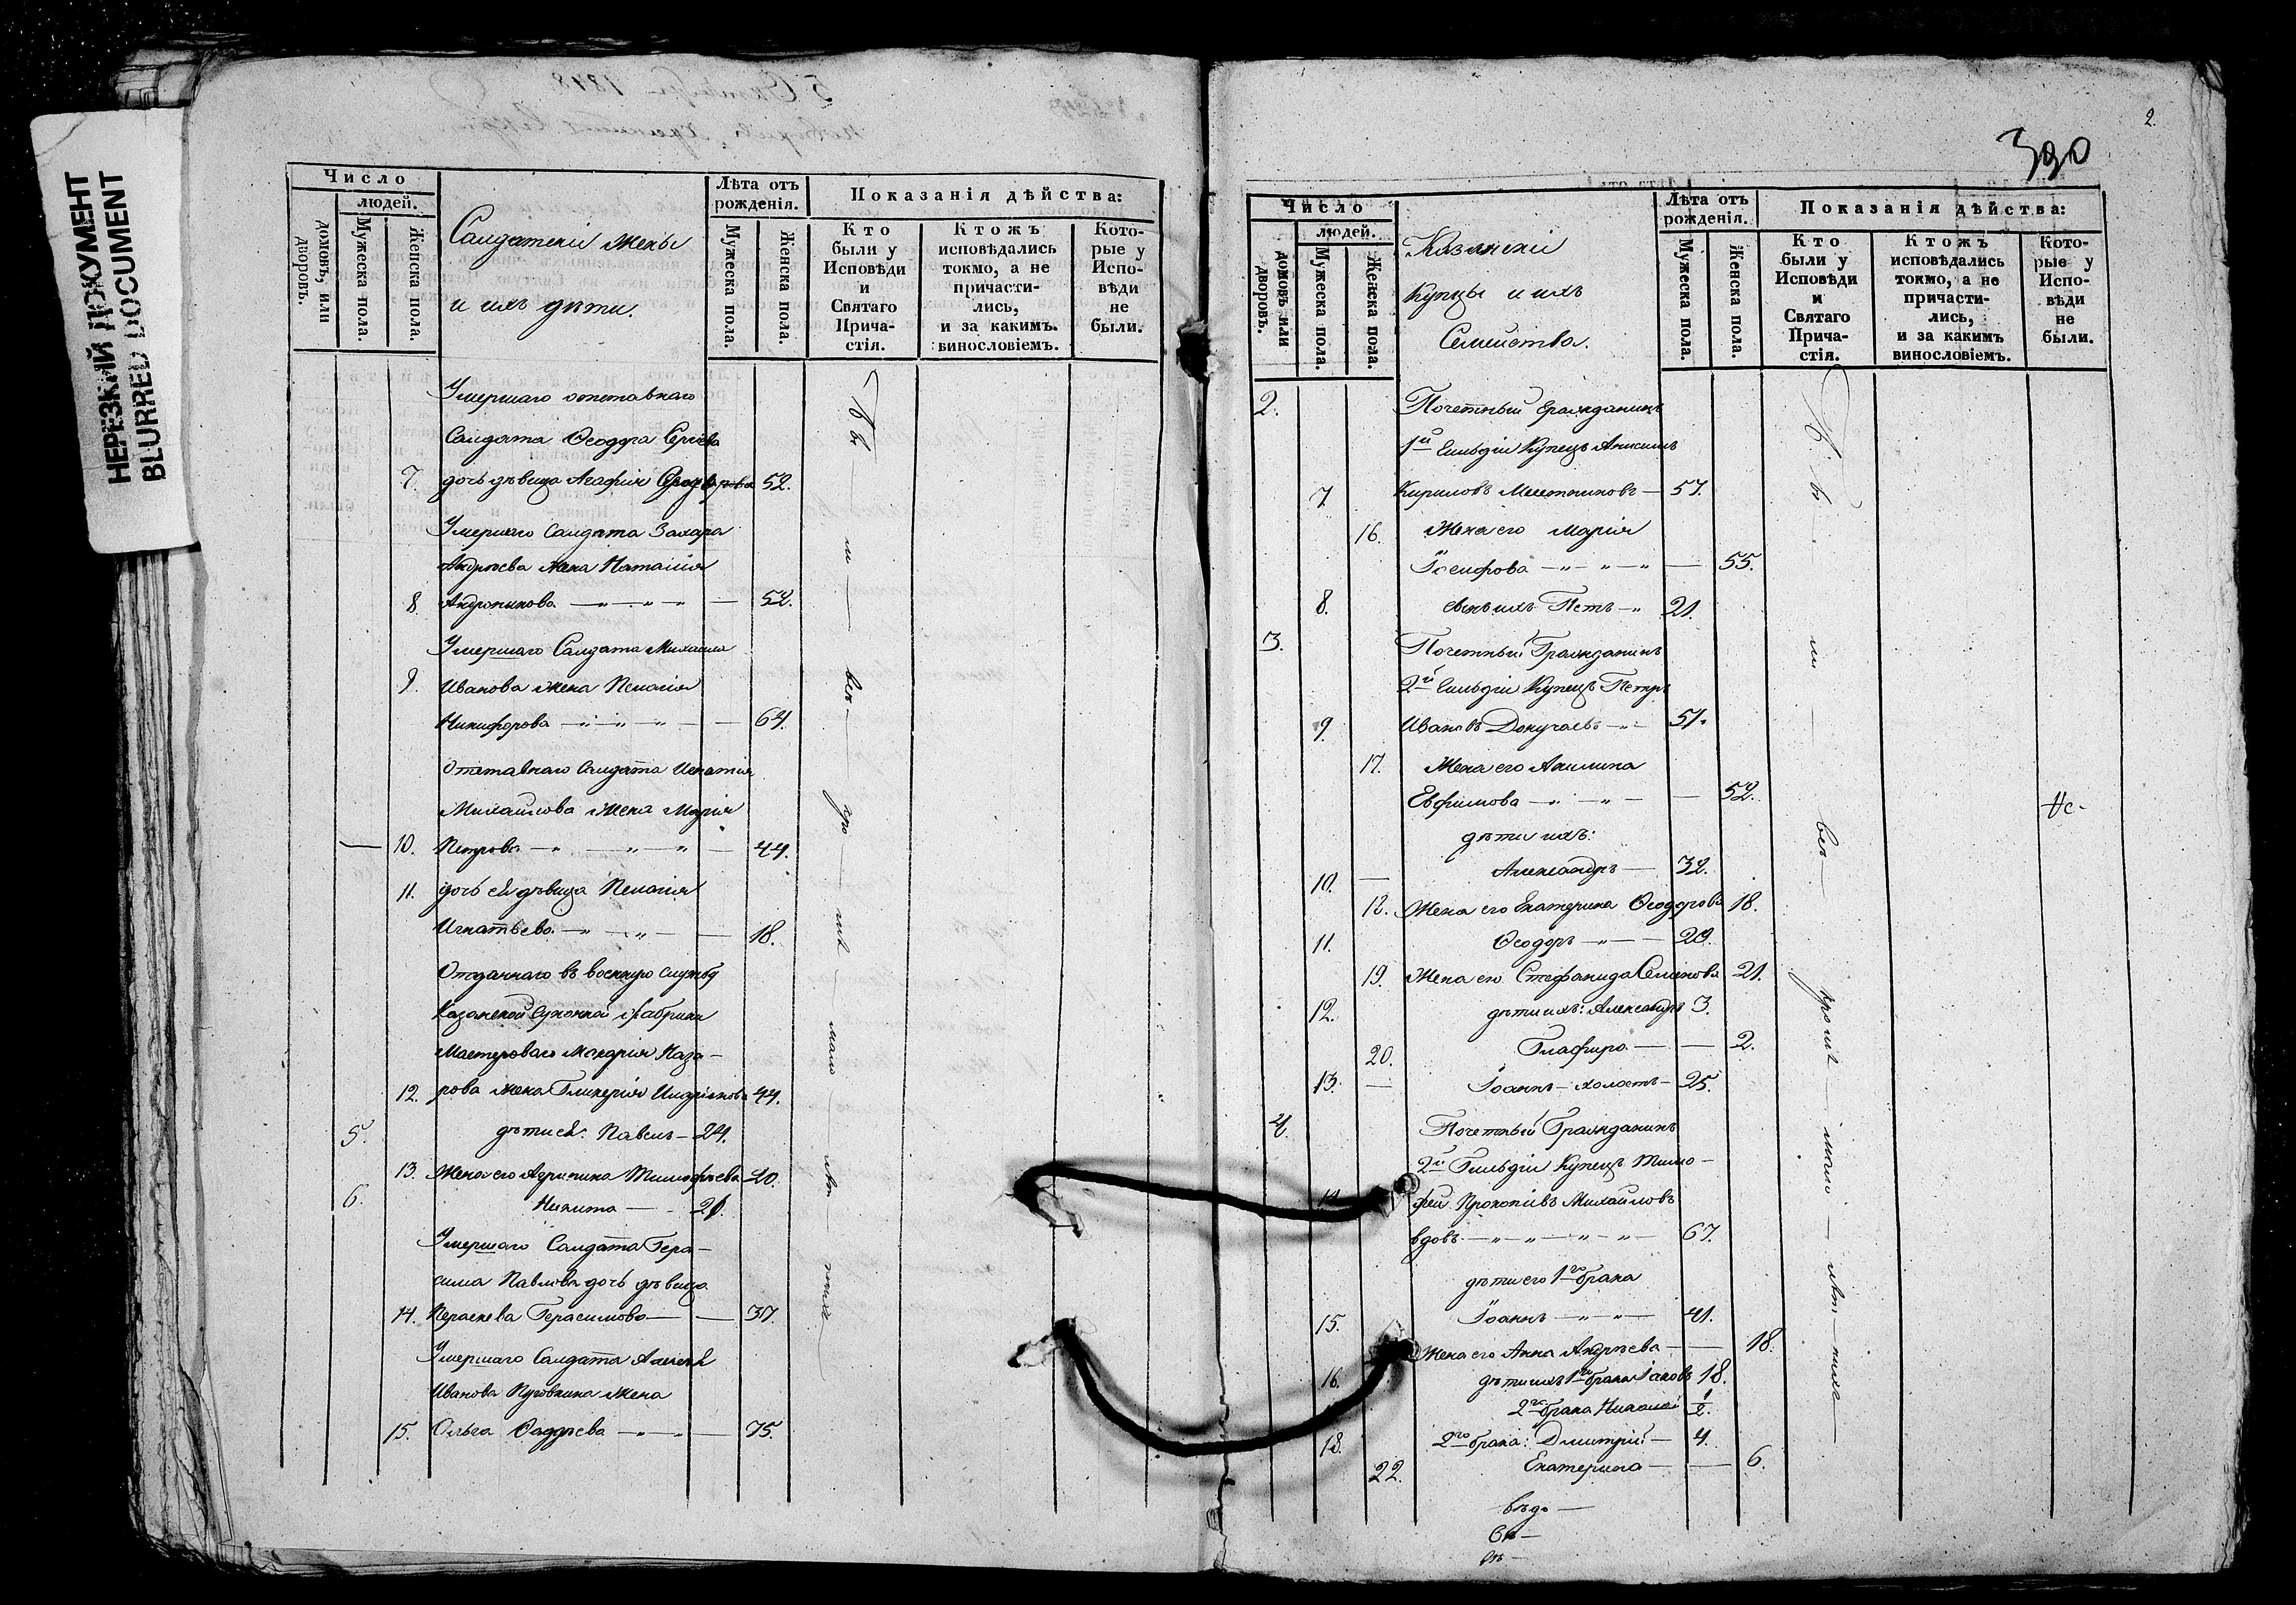 НЕРЕЗКИЙ ДОКУМЕНТ
BLURRED DOCUMENT
Число
людей.
домовъ, или дворовъ.
Мужеска пола.
Женска пола.
Солдатскіи Жены
и ихъ дѣти.
Лѣта отъ рожденія.
Мужеска пола.
Женска пола.
Показанія дѣйства:
Кто были у Исповѣди и Святаго Причастія.
Ктожъ исповѣдались токмо, а не причастились, и за какимъ винословіемъ.
Которые у Исповѣди не были.
Умершаго отставнаго
Солдата Ѳеодора Сергѣева
7. дочь дѣвица Агафія 52.
Умершаго Солдата Захара
Андрѣева жена Наталія
8. Андроникова — 52.
Умершаго Солдата Михаила
9. Иванова жена Пелагія
Никифорова — 64.
Отставнаго Солдата Игнатія
Михайлова Жена Марія
10. Петрова — 44.
11. дочь ея дѣвица Пелагія
Игнатьева — 18.
Отданнаго въ военную службу
Казанской Суконной фабрики
Мастероваго Макарія Наза-
12. рова жена Гликерія 44.
5. дѣти ея: Павелъ — 24.
13. Жена его Агрипина Тимофѣева 20.
6. Никита — 21.
Умершаго Солдата Гера-
сима Павлова дочь дѣвица
14. Параскева Герасимова — 37.
Умершаго Солдата Алексѣя
Иванова Пуговкина жена
15. Ольга Фаддѣева — 75.
2.
390
Число
людей.
домовъ или дворовъ.
Мужеска пола.
Женска пола.
Казанскіи
Купцы и ихъ
Семейства.
Лѣта отъ рожденія.
Мужеска пола.
Женска пола.
Показанія дѣйства:
Кто были у Исповѣди и Святаго Причастія.
Ктожъ исповѣдались токмо, а не причастились, и за какимъ винословіемъ.
Которые у Исповѣди не были.
2. Почетный Гражданинъ
1й Гильдіи Купецъ Анисимъ
7 Кириловъ Месетниковъ — 57.
16. Жена его Марія
Іосифова — 55.
8. сынъ ихъ Петръ 21.
3. Почетный Гражданинъ
2й Гильдіи Купецъ Петръ
9. Ивановъ Докучаевъ 51.
17. Жена его Акилина
Евфимова — 52.
дѣти ихъ:
10. Александръ — 32.
18. Жена его Екатерина Ѳеодорова 18.
11. Ѳеодоръ — 29.
19. Жена его Стефанида Семенова 21.
12. дѣти ихъ: Александръ 3.
20. Глафира — 2.
13. Іоаннъ — холостъ — 25.
4. Почетный Гражданинъ
2й Гильдіи Купецъ Тимо-
14. фей Прокопіевъ Михайловъ
вдовъ — 67.
дѣти его 1го брака
15. Іоаннъ — 41.
Жена его Анна Андрѣева — 18.
16. дѣти ихъ 1го брака Іаковъ 18.
2го брака Николай 1/2.
18. 2го брака: Дмитрій — 4.
22. Екатерина — 6.